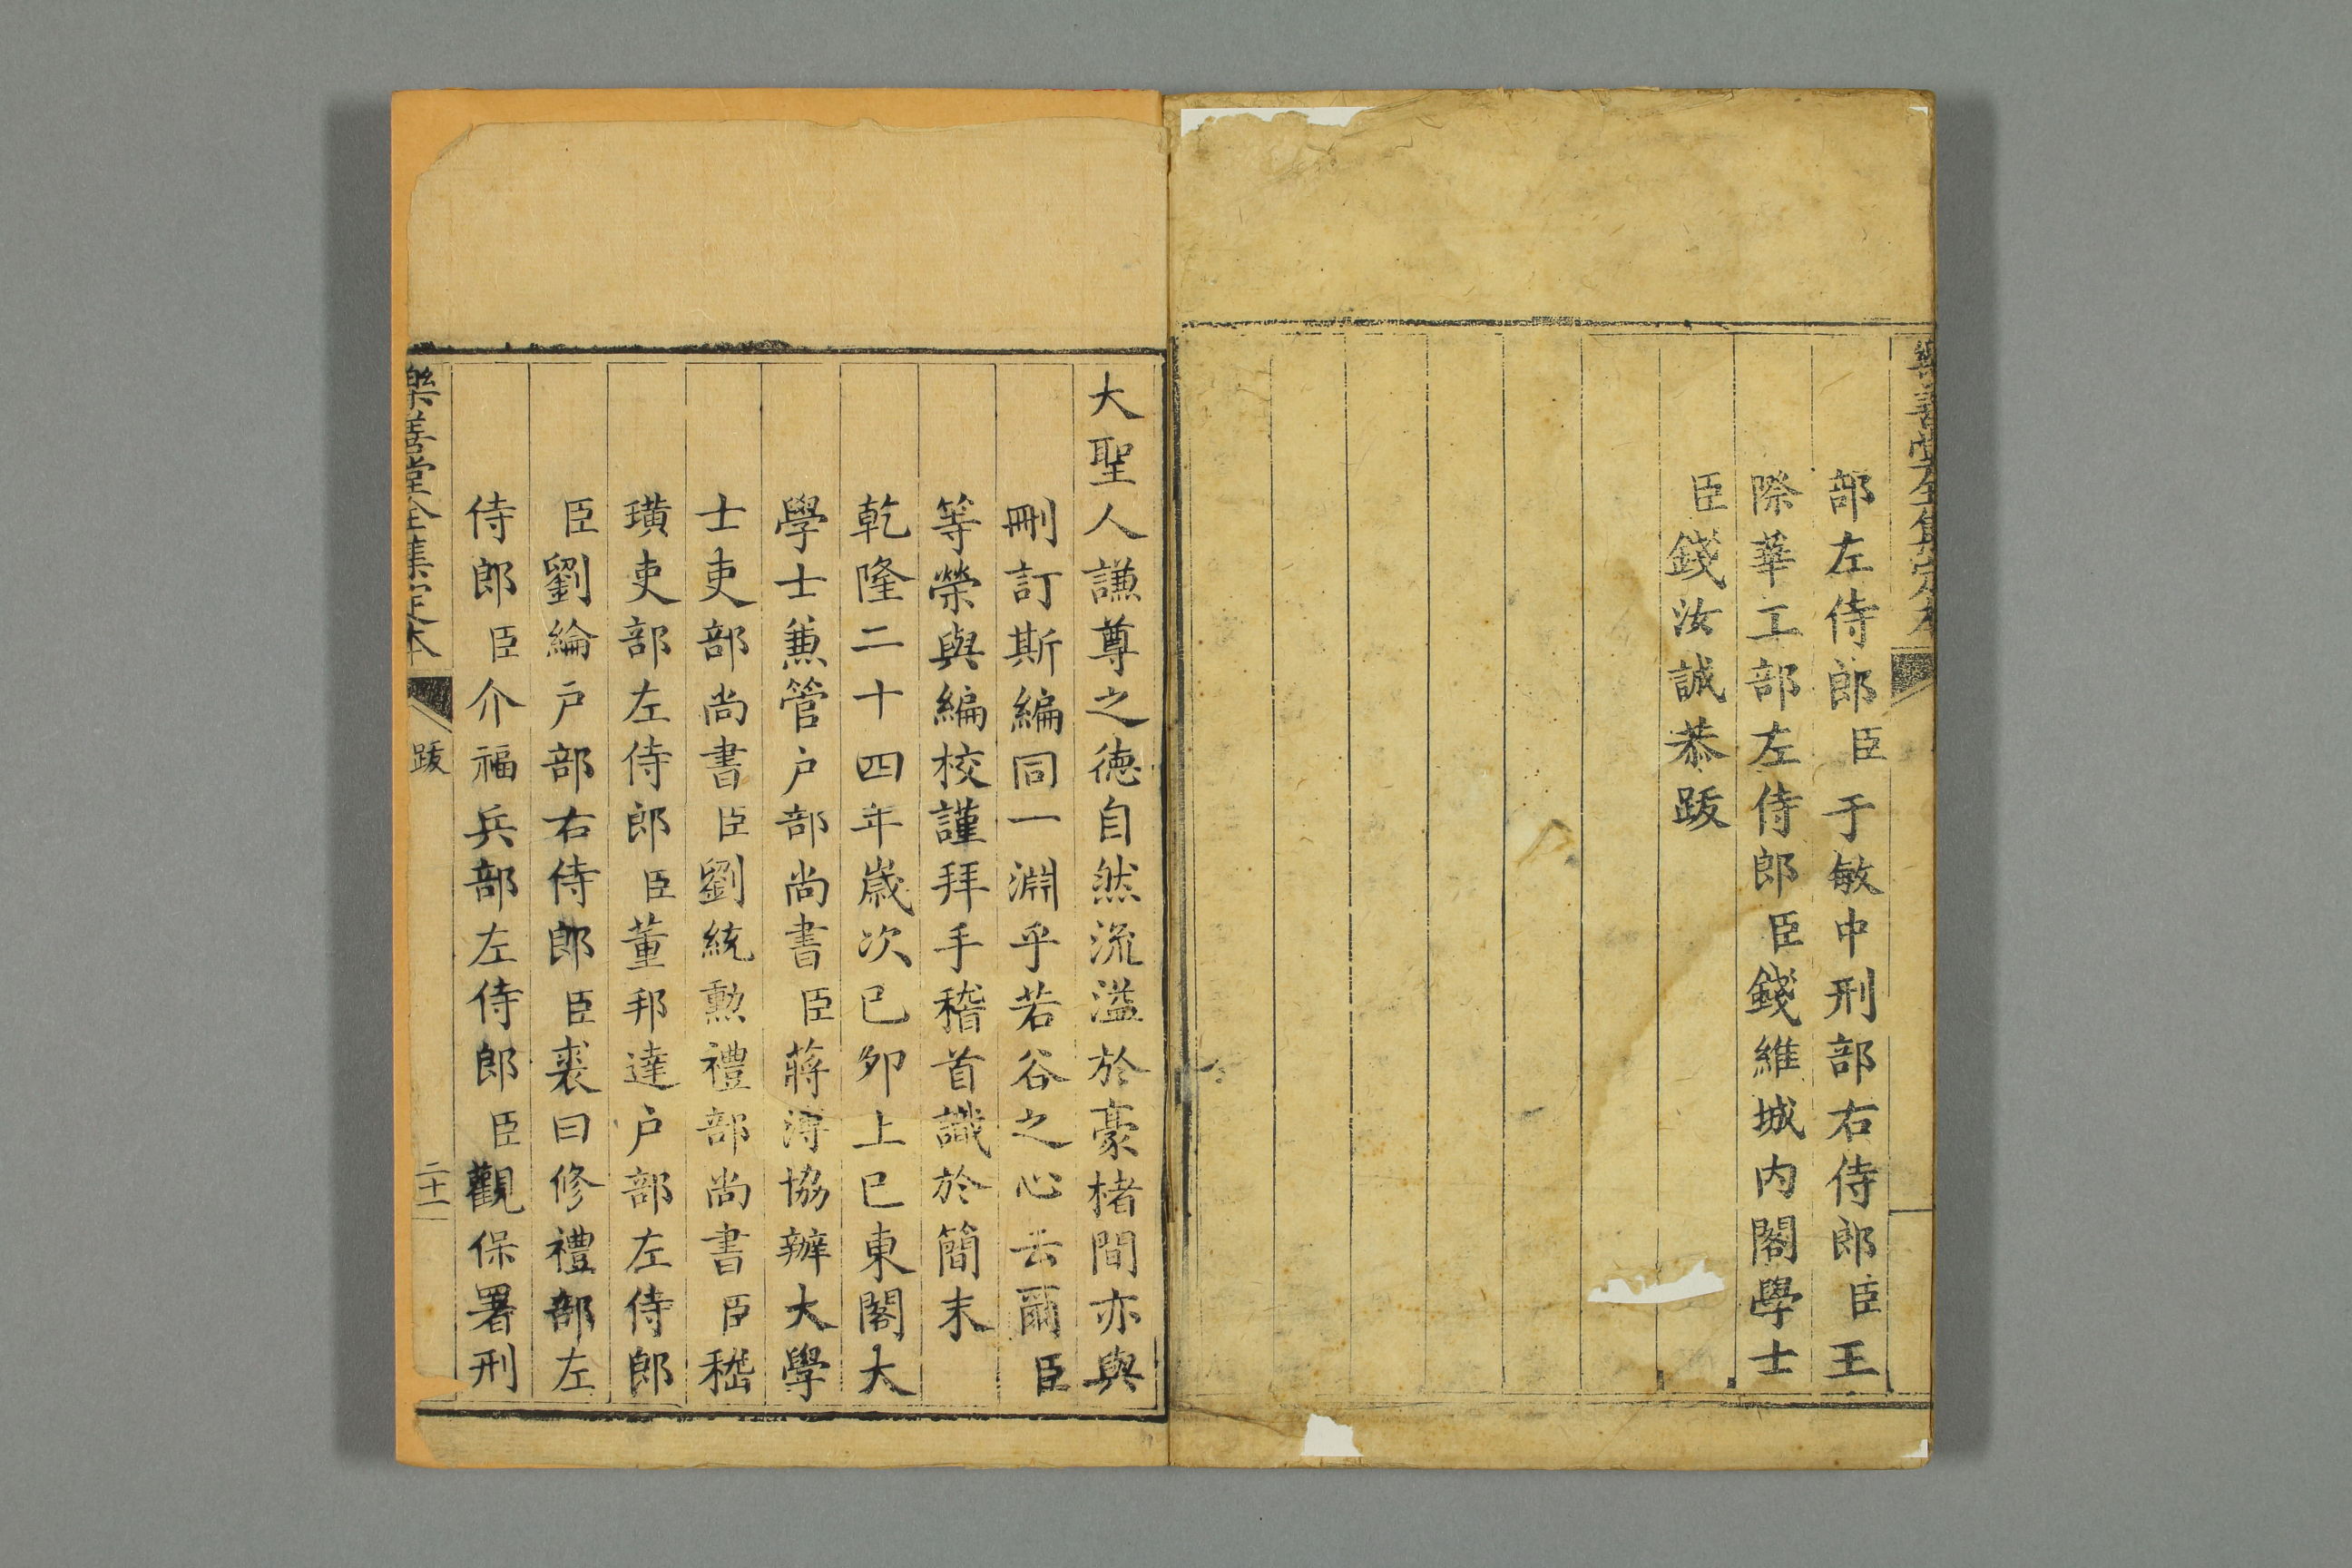 樂善堂全集定本
部左侍郎臣于敏中刑部右侍郎臣王
際華工部左侍郎臣錢維城内閣學士
臣錢汝誠恭跋
大聖人謙尊之德自然流溢於豪楮間亦與
刪訂斯編同一淵乎若谷之心云爾臣
等榮與編校謹拜手稽首識於簡末
乾隆二十四年歲次己卯上巳東閣大
學士兼管户部尚書臣蔣溥協辦大學
士吏部尚書臣劉統勲禮部尚書臣嵇
璜吏部左侍郎臣董邦達户部左侍郎
臣劉綸户部右侍郎臣裘曰修禮部左
侍郎臣介福兵部左侍郎臣觀保署刑
樂善堂全集定本
跋
二十一